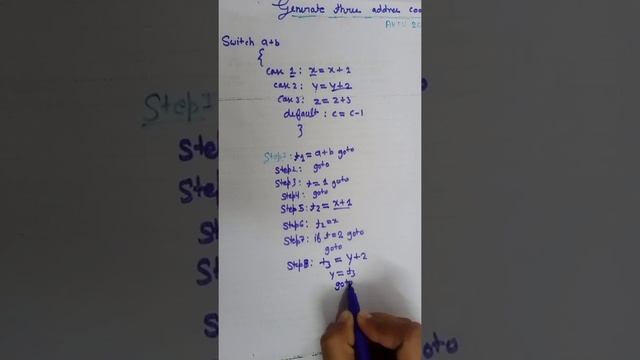 Generate three addres cod
AKTU 20
Switch a+b
{
case 1: x = x+1
case 2: y = y+2
case 3: z = z+3
default : c = c-1
}
Step1: t1 = a+b goto
Step2: goto
Step3: t=1 goto
Step4: goto
Step5: t2 = x+1
Step6: t2=x
Step7: if t=2 goto
goto
Step8: t3 = y+2
y = t3
goto